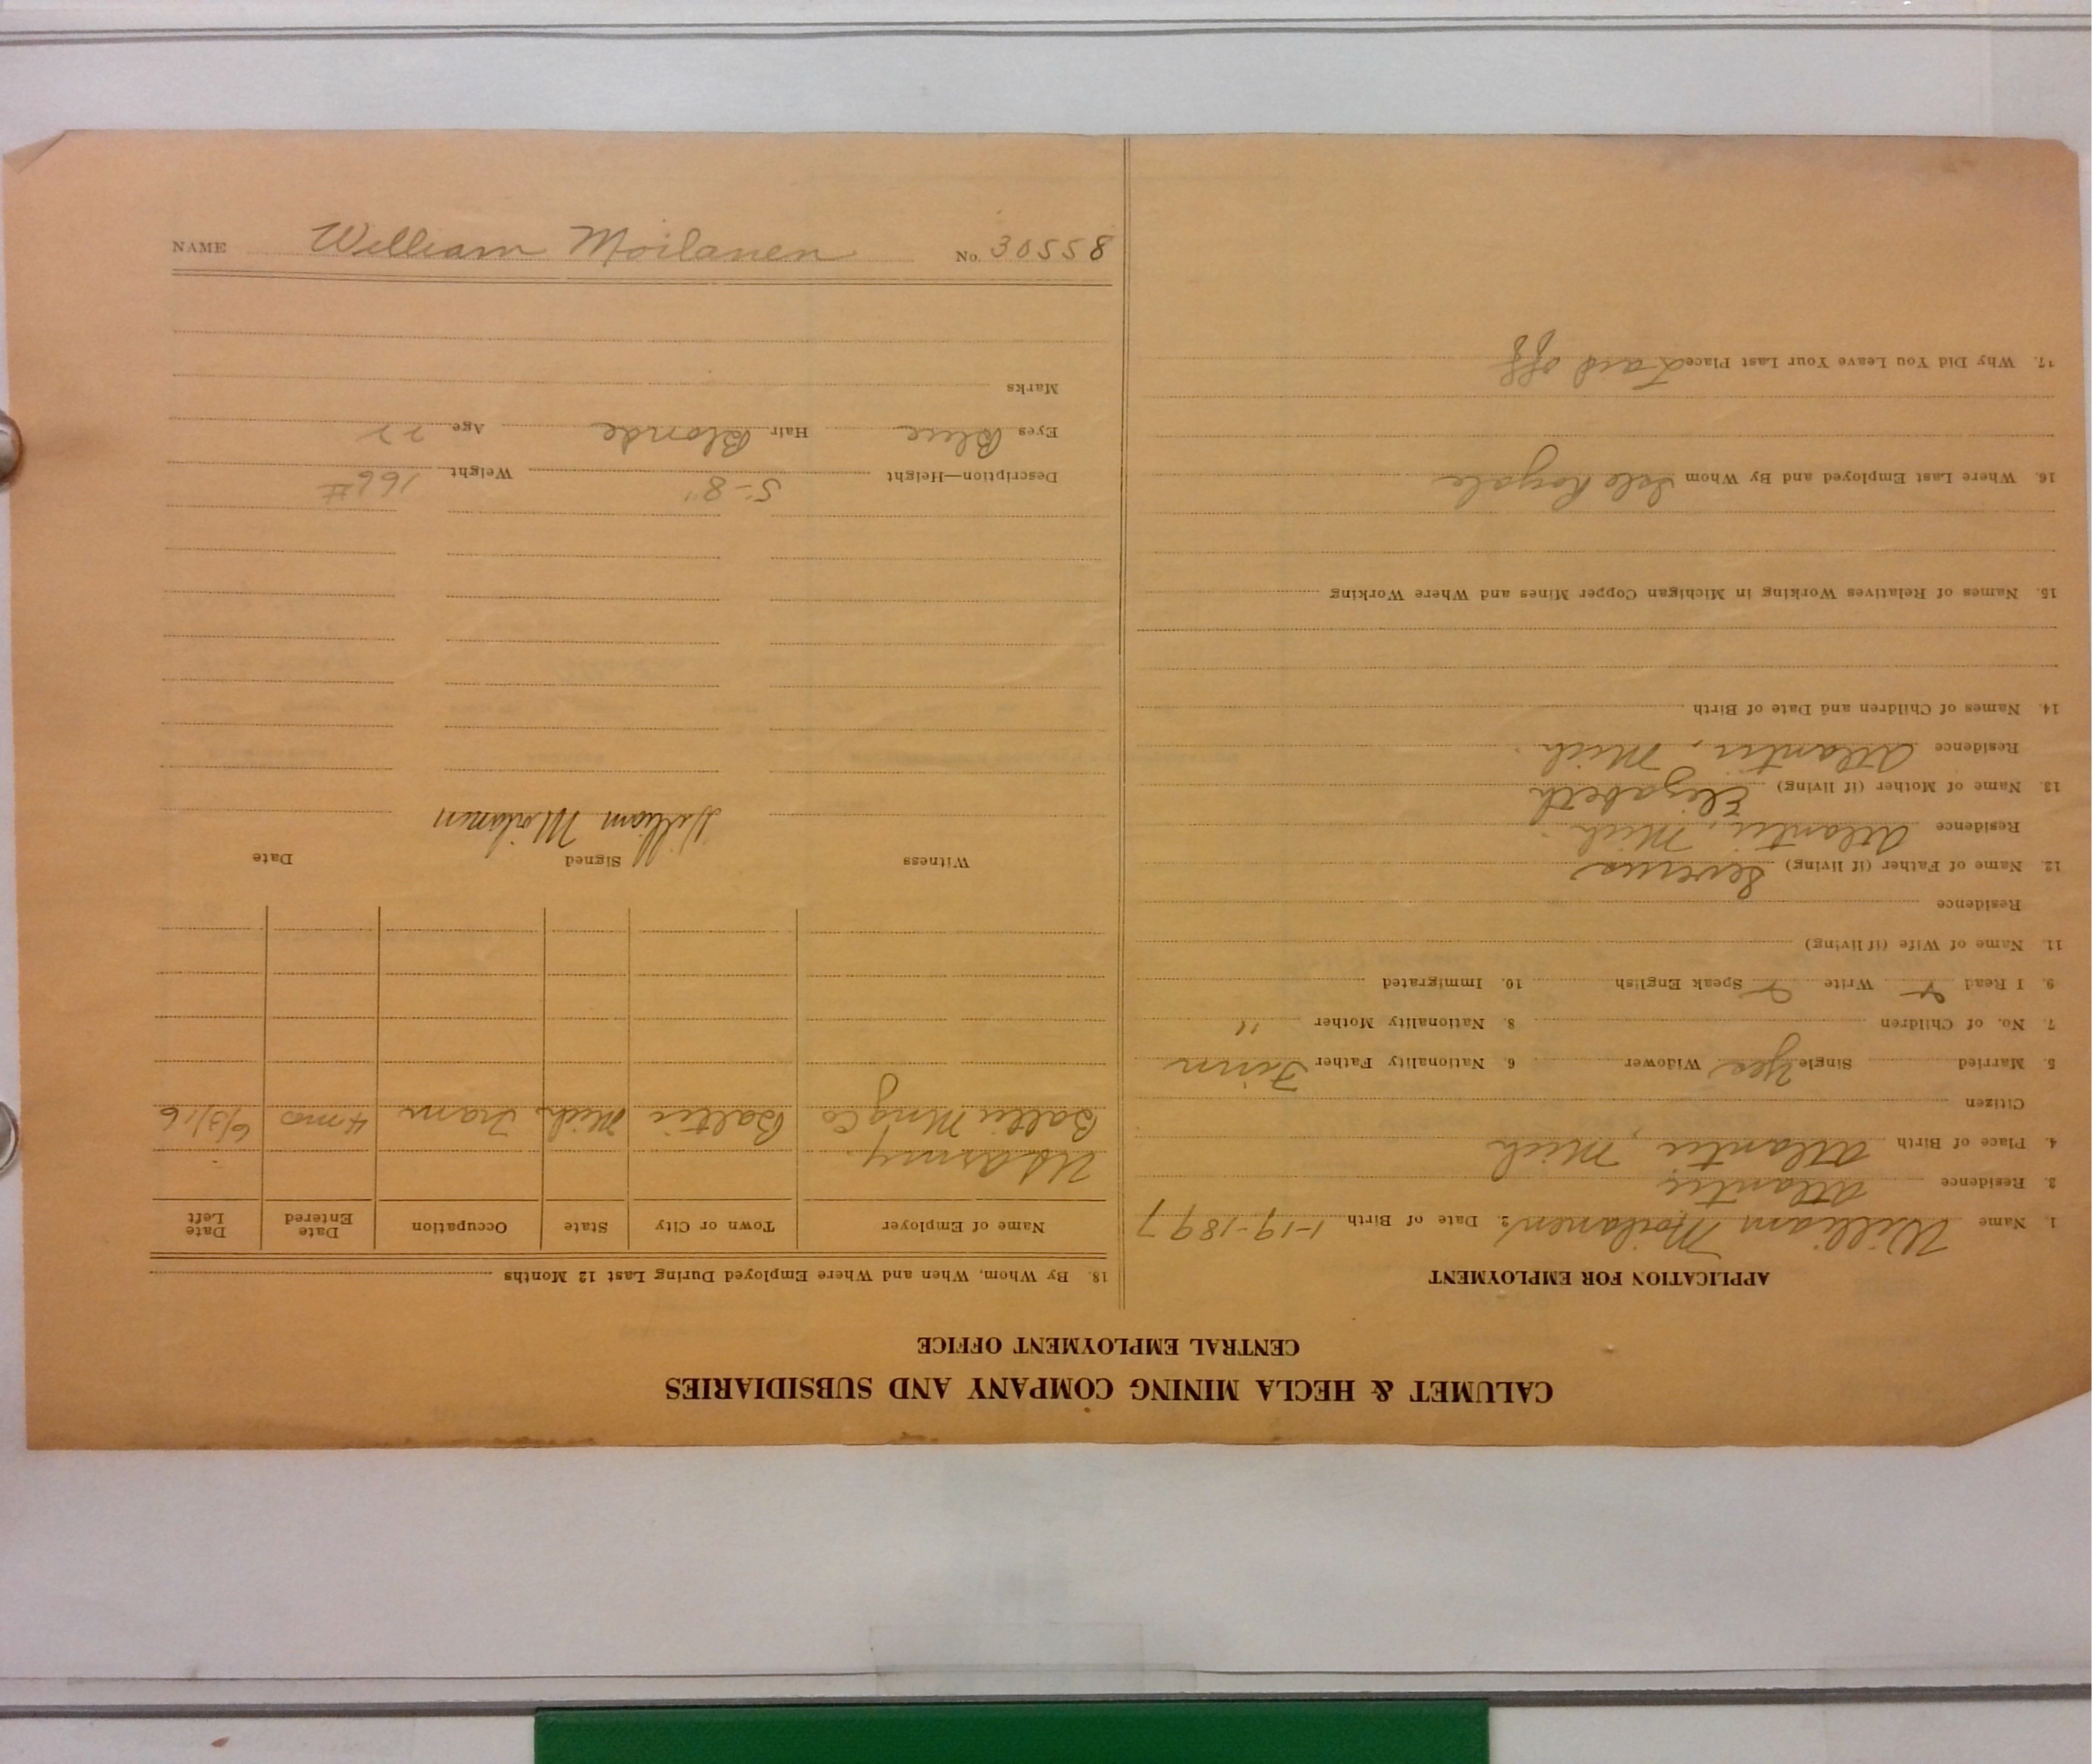 CALUMET & HECLA MINING COMPANY AND SUBSIDIARIES
CENTRAL EMPLOYMENT OFFICE
APPLICATION FOR EMPLOYMENT
1. Name William Moilanen 2. Date of Birth 1-19-1897
3. Residence Atlantic
4. Place of Birth Atlantic, Mich
Citizen
5. Married Single Yes Widower 6. Nationality Father Finn
7. No. of Children 8. Nationality Mother "
9. I Read Write Speak English 10. Immigrated
11. Name of Wife (if living)
Residence
12. Name of Father (if living) Severus
Residence Atlantic, Mich.
13. Name of Mother (if living) Elizabeth
Residence Atlantic, Mich.
14. Names of Children and Date of Birth
15. Names of Relatives Working in Michigan Copper Mines and Where Working
16. Where Last Employed and By Whom Isle Royale
17. Why Did You Leave Your Last Place Laid off
18. By Whom, When and Where Employed During Last 12 Months
Name of Employer Town or City State Occupation Date Entered Date Left
US Army
Baltic Mng Co Baltic Mich. Tram 4 mos 6/3/16
Witness Signed Date
William Moilanen
Description—Height 5'-8" Weight 166#
Eyes Blue Hair Blonde Age 22
Marks
NAME William Moilanen No. 30558